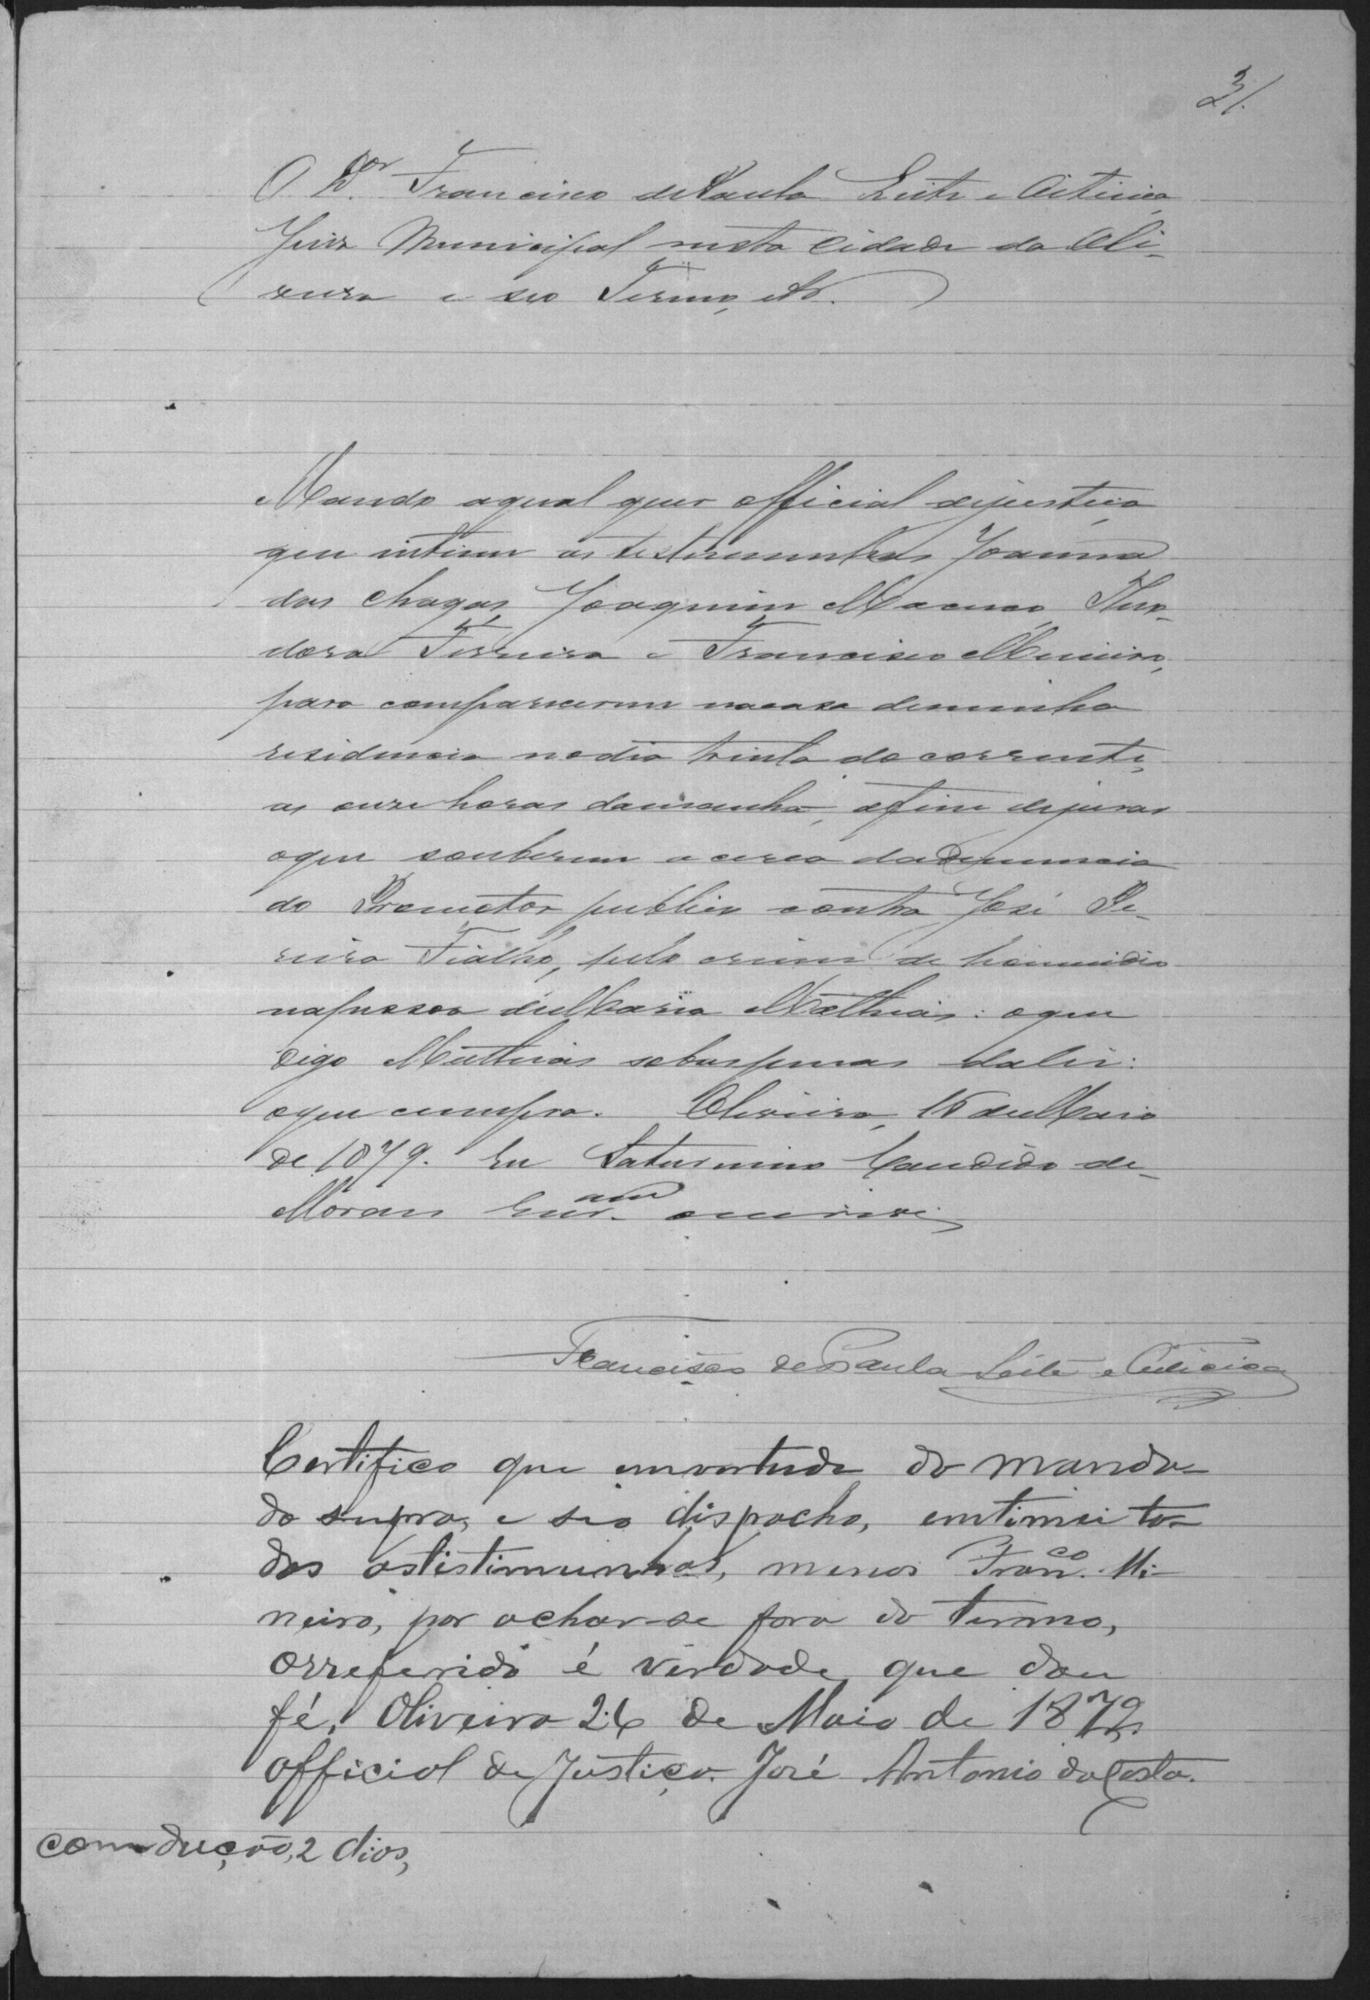 31.
O Dor. Francisco de Paula Leite e Oiticica
Juiz Municipal nesta Cidade da Oli-
veira e seo Termo, etc.
Mando aqual quer official dejustiça
que intime as testemunhas Joanna
das Chagas, Joaquim Macuco, Theo-
dora Ferreira e Francisco Mineiro,
para comparecerem nacasa deminha
residencia nodia trinta do corrente,
as onze horas damanhã, afim dejurar
oque souberem acerca dadenuncia
do Promotor publico contra José Pe-
reira Fialho, pelo crime de homicidio
napessoa deMaria Mathias: oque
digo Mathias sobaspenas dalei:
oque cumpra. Oliveira, 15 deMaio
de 1879. Eu Saturnino Candido de
Moraes Escram. escrivi
Francisco de Paula Leite e Oiticica
Certifico que emvertude do manda-
do supra, e seo dispacho, emtimei to-
das astistimunhas, menos Franco. Mi-
neiro, por achar-se fora do termo,
orreferido é verdade que dou
fé. Oliveira 26 de Maio de 1879
official de Justiça. José Antonio daCosta.
comdução, 2 dias,